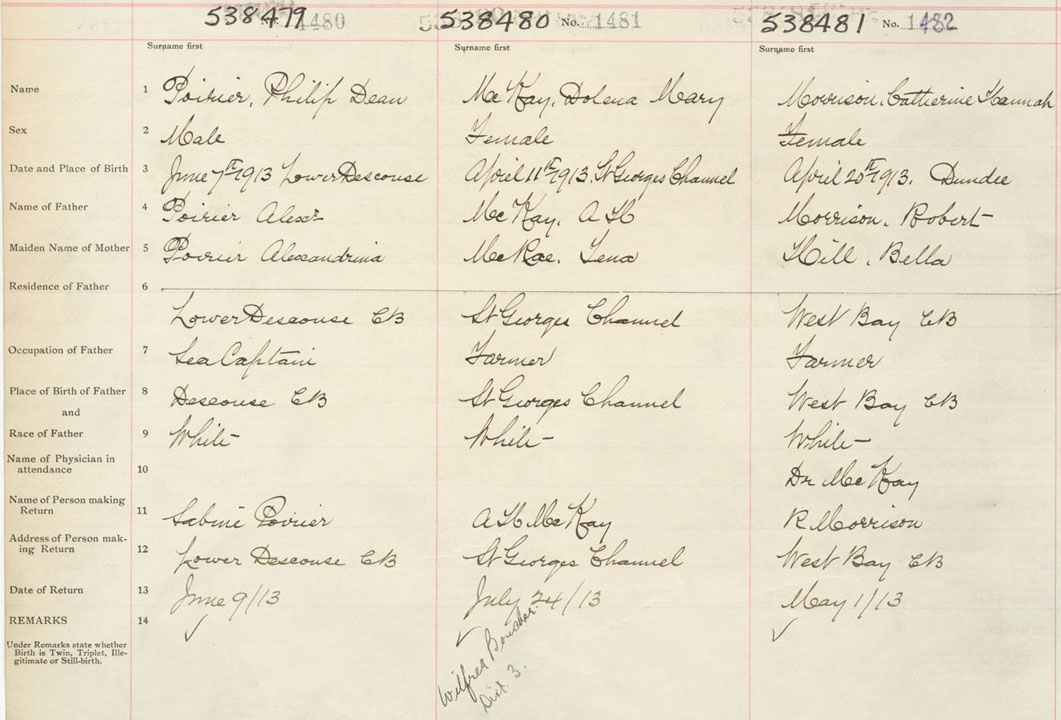 538479 No. 1480 538480 No. 1481 538481 No. 1482
Surname first Surname first Surname first
Name 1 Poirier, Philip Dean McKay, Dolena Mary Morrison, Catherine Hannah
Sex 2 Male Female Female
Date and Place of Birth 3 June 7th 1913 Lower Descouse April 11th 1913. St Georges Channel April 20th 1913. Dundee
Name of Father 4 Poirier Alexr McKay. A H Morrison. Robert
Maiden Name of Mother 5 Poirier Alexandrina McRae. Lena Hill. Bella
Residence of Father 6
Lower Descouse CB St Georges Channel West Bay CB
Occupation of Father 7 Sea Captain Farmer Farmer
Place of Birth of Father 8 Descouse CB St Georges Channel West Bay CB
and
Race of Father 9 White White White
Name of Physician in
attendance 10 Dr McKay
Name of Person making
Return 11 Sabine Poirier A H McKay R Morrison
Address of Person mak-
ing Return 12 Lower Descouse CB St Georges Channel West Bay CB
Date of Return 13 June 9/13 July 24/13 May 1/13
REMARKS 14
Under Remarks state whether
Birth is Twin, Triplet, Ille-
gitimate or Still-birth.
Wilfred Boucher
Dist. 3.